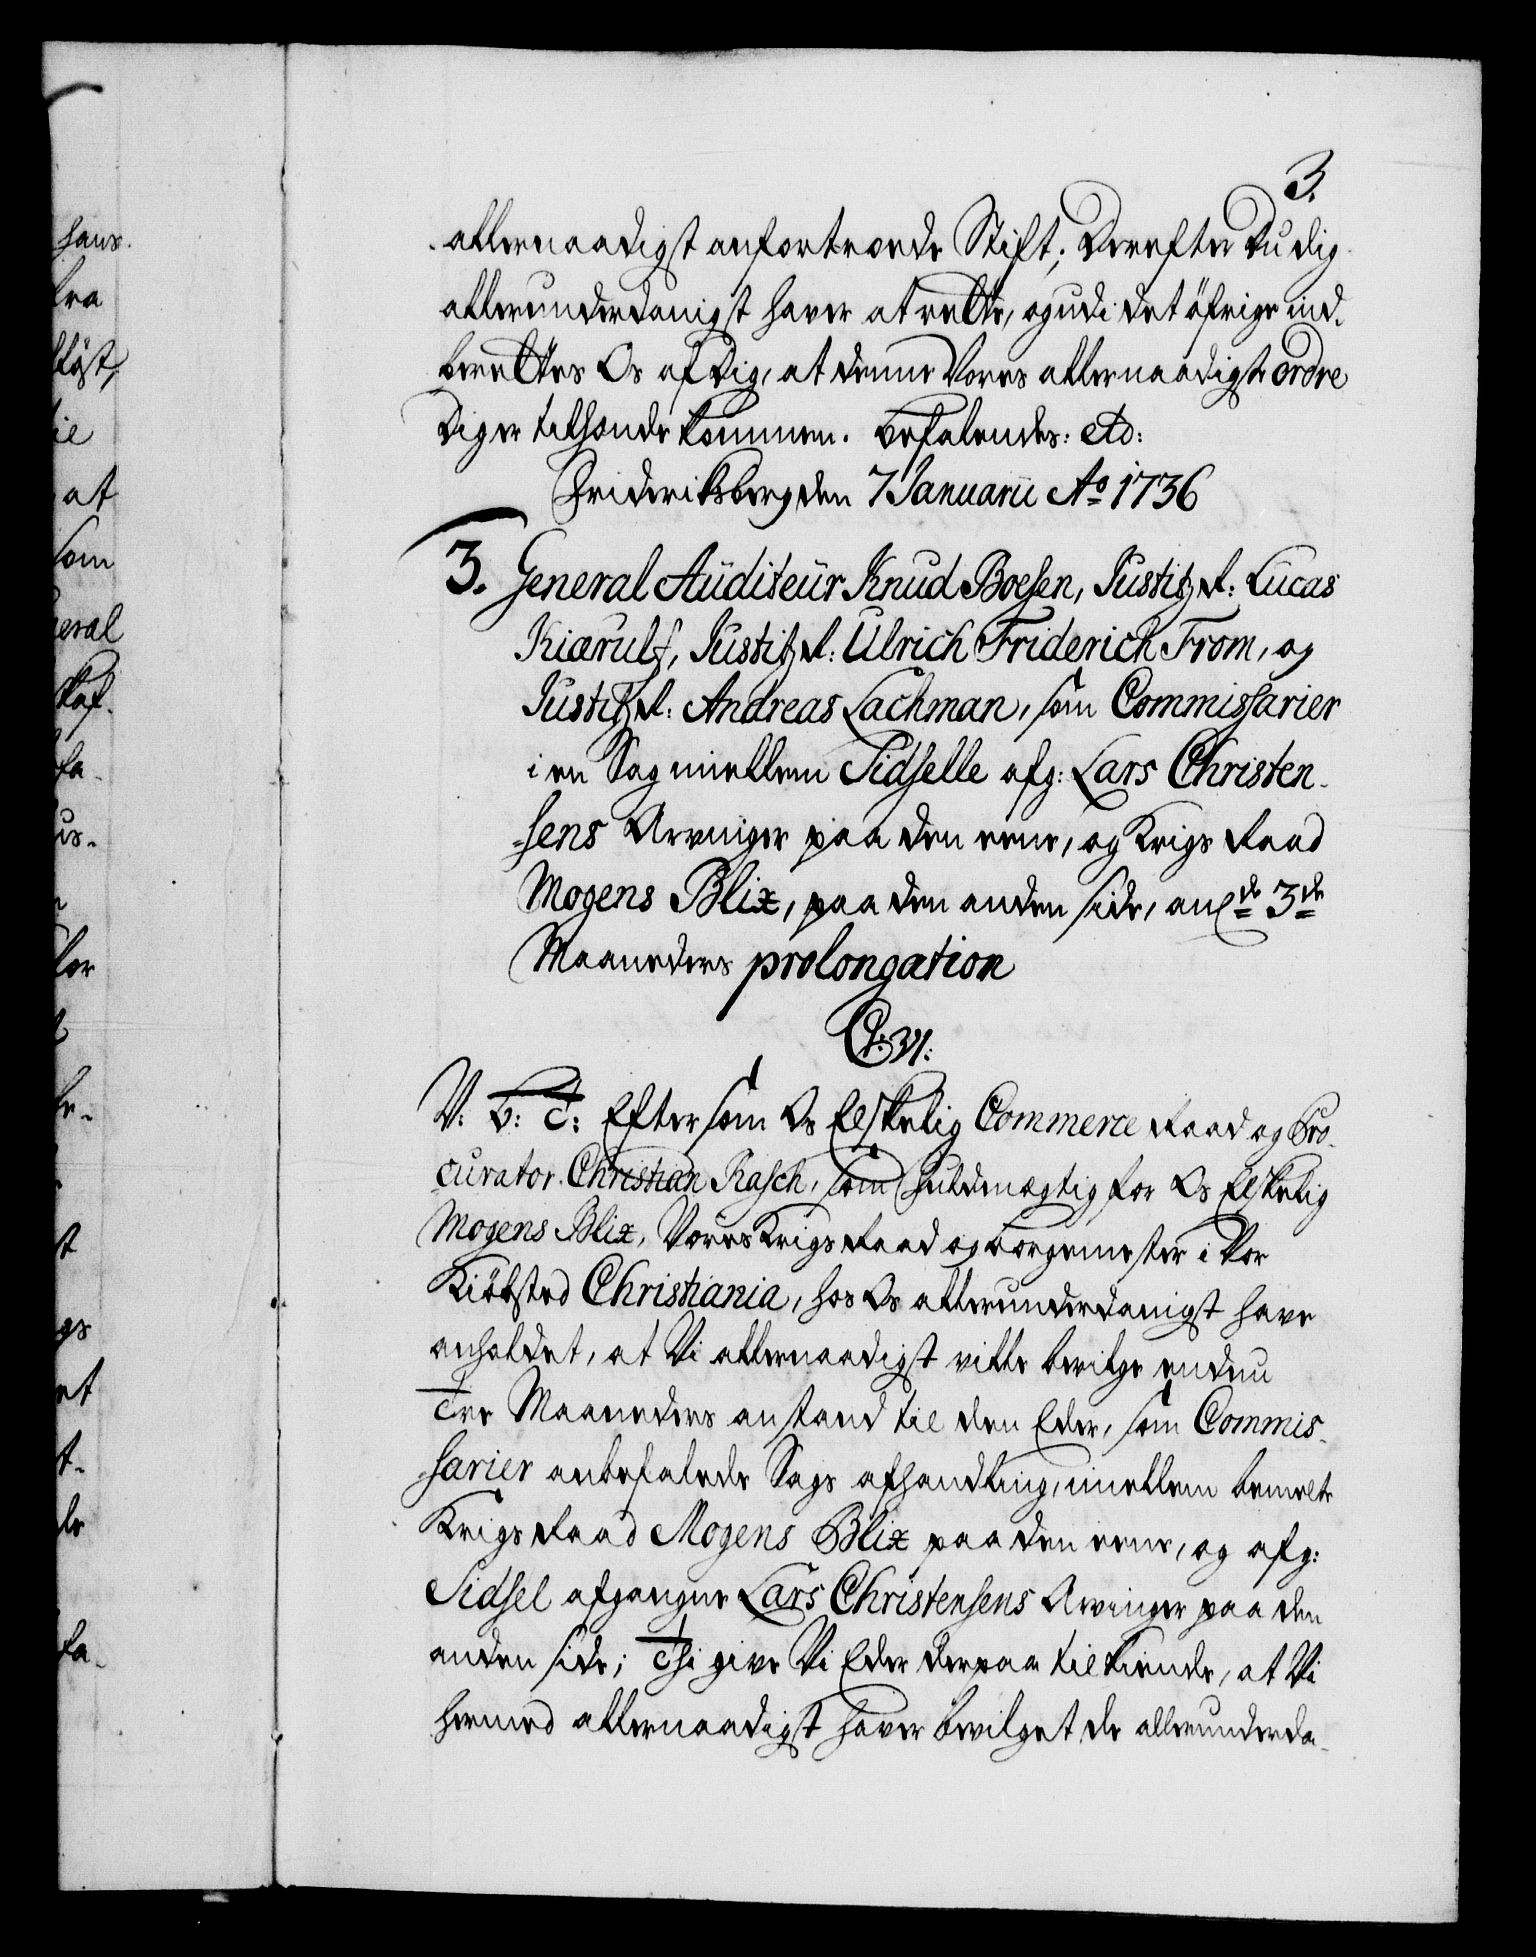 3.
allernaadigst anfortroede Stift; Derefter du dig
allerunderdanigst haver at rette, og udi det öfrige ind-
berettes Os af Dig, at denne Vores allernaadigste ordre
Dig er tilhænde kommen. befalendes: etc:
Friderichsberg den 7 Januarii Ao 1736
3. General Aüditeür Knud Boesen, Justitz R: Lucas
Kiærulf, Justitz R: Ulrich Friderich From, og
Justitz R: Andreas Lachman, som Commissarier
i en Sag imellem Sidselle afg: Lars Christen-
sens Arvinger paa den eene, og Krigs Raad
Mogens Blix, paa den anden side, ang de 3de
Maaneders prolongation
C: VI:
V: b: T: Eftersom Os Elskelig Commerce Raad og Pro-
curator Christian Rasch, som fuldmægtig for Os Elskelig
Mogens Blix, Vores Krigs Raad og borgemester i Vor
Kiöbsted Christiania, hos Os allerunderdanigst have
anholdet, at Vi allernaadigst ville bevilge endnu
Tre Maaneders anstand til den Eder, som Commis-
sarier anbefalede Sags afhandling, imellem bemelte
Krigs Raad Mogens Blix paa den eene, og afg:
Sidsel afgangne Lars Christensens Arvinger paa den
anden side; Thi give Vi Eder derpaa tilkiende, at Vi
hermed allernaadigst haver bevilget de allerunderda-
hans
fra
löst,
til
at
som
neral
skaf-
fa-
us-
for
he-
st
gs
et
t-
de
fa-